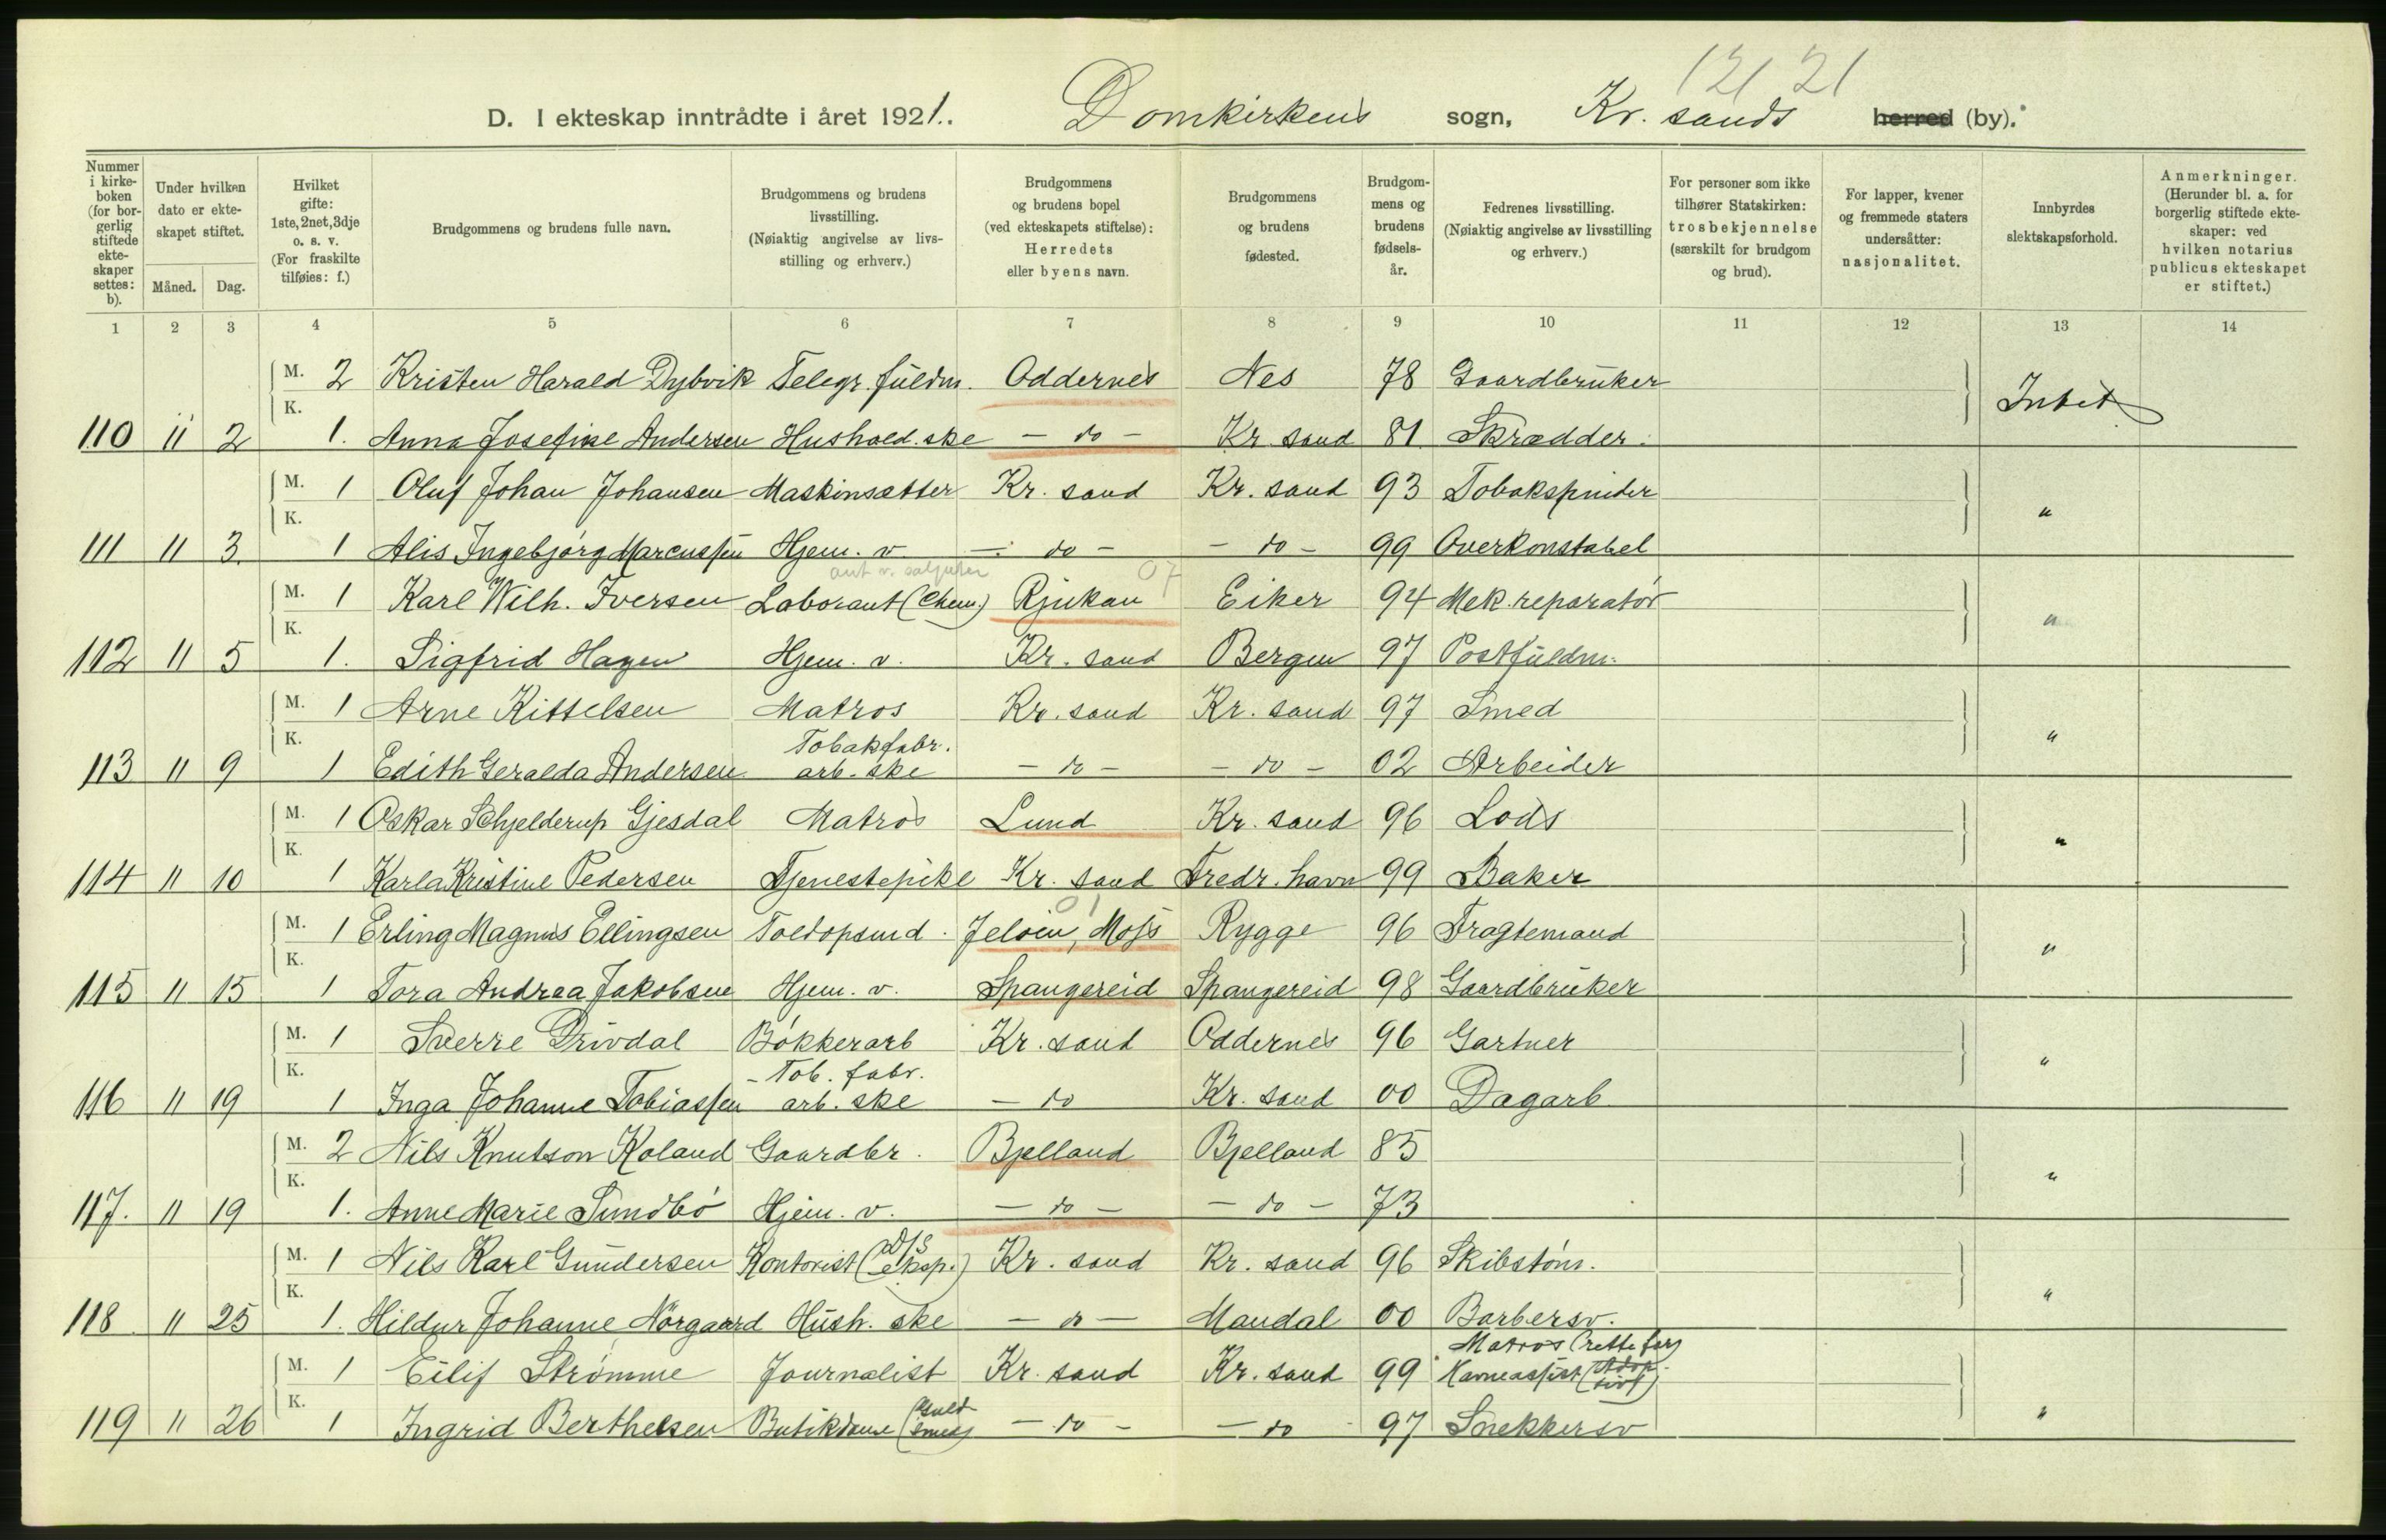 121 21
D. I ekteskap inntrådte i året 1921. Domkirkens sogn, Kr. sands herred (by).
Nummer i kirkeboken (for borgerlig stiftede ekteskaper settes: b).
Under hvilken dato er ekteskapet stiftet.
Måned. Dag.
Hvilket gifte: 1ste, 2net, 3dje o. s. v. (For fraskilte tilføies: f.)
Brudgommens og brudens fulle navn.
Brudgommens og brudens livsstilling. (Nøiaktig angivelse av livsstilling og erhverv.)
Brudgommens og brudens bopel (ved ekteskapets stiftelse): Herredets eller byens navn.
Brudgommens og brudens fødested.
Brudgommens og brudens fødselsår.
Fedrenes livsstilling. (Nøiaktig angivelse av livsstilling og erhverv.)
For personer som ikke tilhører Statskirken: trosbekjennelse (særskilt for brudgom og brud).
For lapper, kvener og fremmede staters undersåtter: nasjonalitet.
Innbyrdes slektskapsforhold.
Anmerkninger. (Herunder bl. a. for borgerlig stiftede ekteskaper: ved hvilken notarius publicus ekteskapet er stiftet.)
1 2 3 4 5 6 7 8 9 10 11 12 13 14
M. 2 Kristen Harald Dybvik Telegr. fuldm. Oddernes Nes 78 Gaardbruker
Intet
K.
110 11 2 1. Anna Josefine Andersen Hushold.ske - do - Kr. sand 81 Skrædder.
M. 1 Oluf Johan Johansen Maskinsætter Kr. sand Kr. sand 93 Tobakspinder
K. "
111 11 3. 1 Alis Ingebjørg Marcussen Hjem. v - do - - do - 99 Overkonstabel
07
M. 1 Karl Wilh. Iversen Laborant (Chem.) Rjukan Eiker 94 Mek. reparatør
K. "
112 11 5 1. Sigfrid Hagen Hjem. v. Kr. sand Bergen 97 Postfuldm.
M. 1 Arne Kittelsen Matros Kr. sand Kr. sand 97 Smed
K. Tobakfabr. "
113 11 9 1 Edith Geralda Andersen arb.ske - do - - do - 02 Arbeider
M. 1 Oskar Schjelderup Gjesdal Matros Lund Kr. sand 96 Lods
K. "
114 11 10 1 Karla Kristine Pedersen Tjenestepike Kr. sand Fredr.havn 99 Baker
01
M. 1 Erling Magnus Ellingsen Toldopsund. Jeløen, Moss Rygge 96 Fragtemand
K. "
115 11 15 1 Tora Andrea Jakobsen Hjem. v. Spangereid Spangereid 98 Gaardbruker
M. 1 Sverre Drivdal Bøkkerarb Kr. sand Oddernes 96 Gartner
K. - Tob. fabr. "
116 11 19 1 Inga Johanne Tobiassen arb. ske - do Kr. sand 00 Dagarb
M. 2 Nils Knutson Koland Gaardbr. Bjelland Bjelland 85
K. "
117. 11 19 1. Anne Marie Sundbø Hjem. v. - do - - do - 73
M. 1 Nils Karl Gundersen Kontorist (D/S eksp.) Kr. sand Kr. sand 96 Skibstøm.
K. "
118 11 25 1. Hildur Johanne Nørgaard Hush. ske - do - Mandal 00 Barbersv.
Matros (rette far)
M. 1 Eilif Strømme Journalist Kr. sand Kr. sand 99 Havneassist (Adop-
K. tivf) "
119 11 26 1 Ingrid Berthelsen Butikdame (Guldsmed) - do - - do 97 Snekkersv